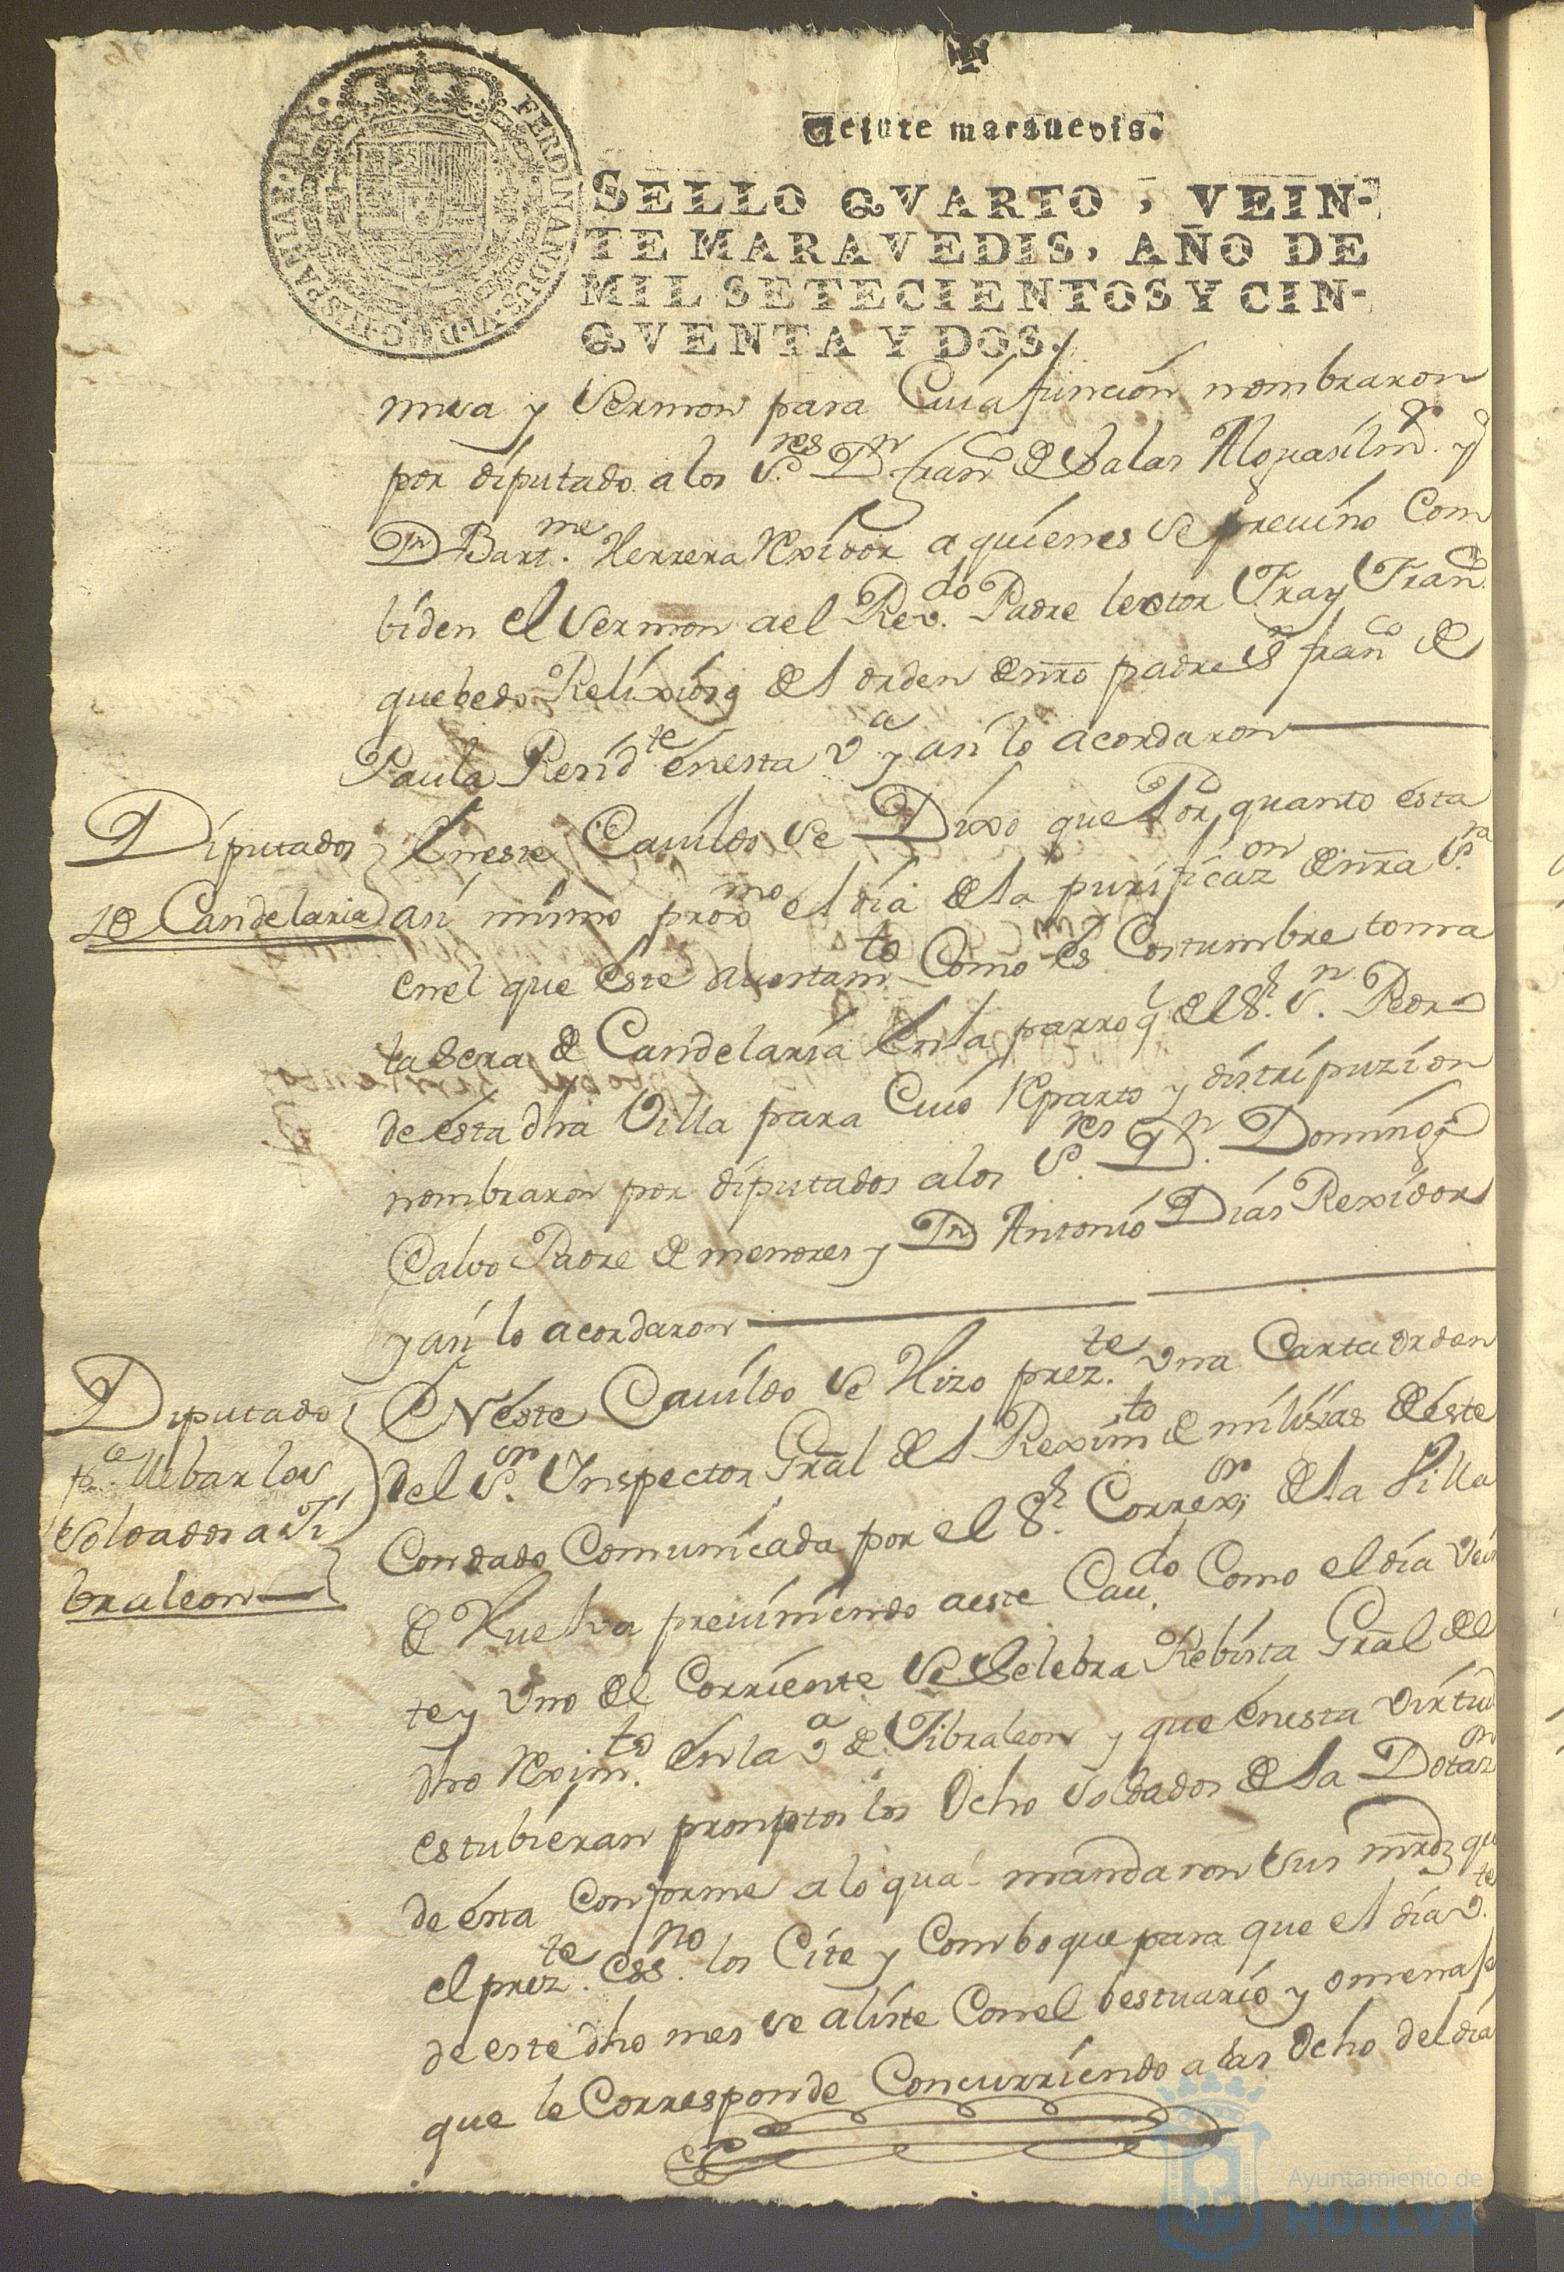 Veinte marauedis.
SELLO QVARTO, VEIN-
TE MARAVEDIS, AÑO DE
MIL SETECIENTOS Y CIN-
QVENTA Y DOS.
FERDINANDUS·VI·D·G·HISPANIAR·REX·
missa y sermon para Cuia función nombraron
por diputado a los S.res Dn fran.co de Salas Alguasil m.or y
Dn Bart.me Herrera Rexidor a quienes se preuino Com
biden el sermon a el Rev.do Padre lector Fray Fran.co
quebedo Relixioso del orden de nro padre Sn fran.co de
Paula Resid.te en esta v.a y asi lo acordaron
Diputados
de Candelaria
En este Cauildo se Dixo que Por quanto esta
asi mismo prox.mo el dia de la purificaz.on de nra S.ra
en el que este aiuntam.to Como es Costumbre toma
la Sera de Candelaria En la parroq.l del S.r S.n Pedro
de esta dha Villa para Cuio Reparto y distripuzion
nombraron por diputados a los S.res D.n Domingo
Calvo Padre de menores y Dn Antonio Dias Rexidor
y asi lo acordaron
Diputado
p.a llebar los
soldados a Ji
braleon
ENeste Cauildo se Hizo prez.te una Carta orden
del S.or Inspector Gral del Rexim.to de milisias de este
Condado Comunicada por el S.r Correx.or de la Villa
de Huelva preuiniendo a este Cau.do Como el dia Vein
te y uno del Corriente Se Selebra Rebista Gral del
dho Rexim.to en la v.a de Jibraleon y que en esta virtud
estubieran promptos los Ocho soldados de la Dotaz.on
de esta Conforme a lo qual mandaron sus mrds que
el prez.te ess.no los Cite y Comboque para que el dia v.te
de este dho mes se aliste Con el bestuario y omenaje
que le Corresponde Concurriendo a las Ocho del dia
Ayuntamiento de
HUELVA